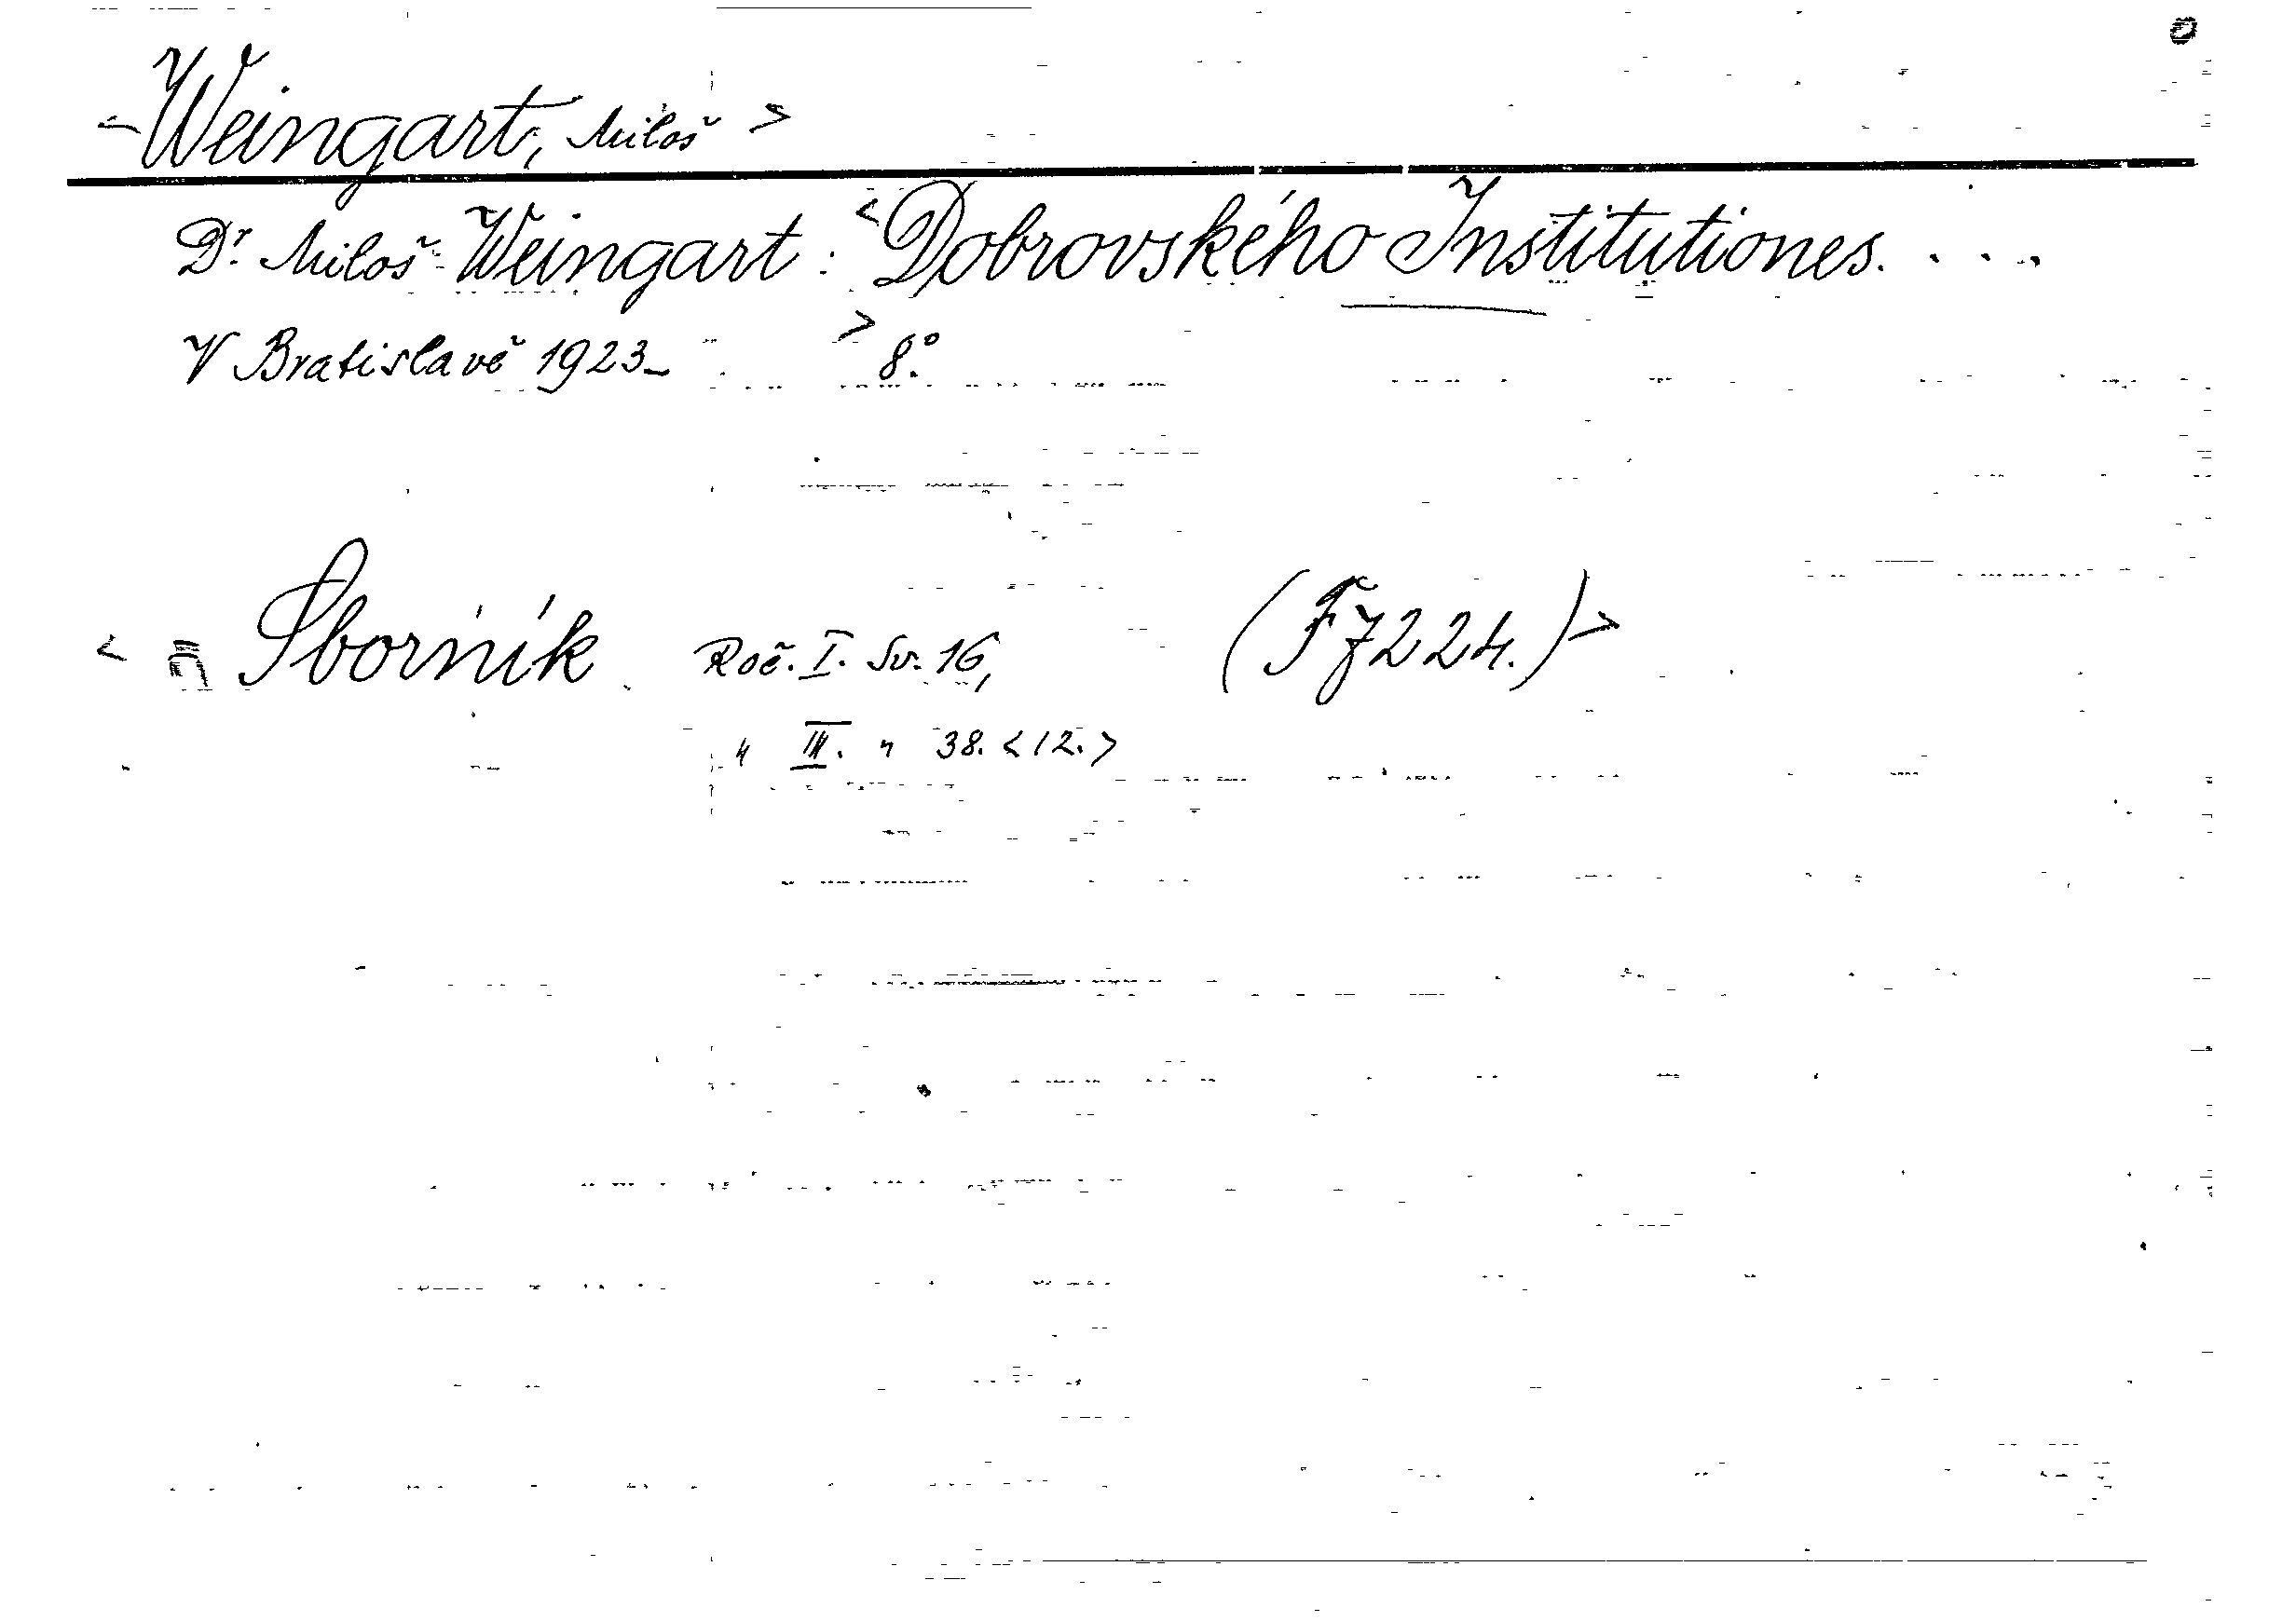 <Weingart, Miloš>
Dr. Miloš Weingart: <Dobrovského Institutiones. ...
V Bratislavě 1923- > 8º.
< Sborník Roč. I. Sv. 16, (F 7224.)>
" III. " 38. <12.>